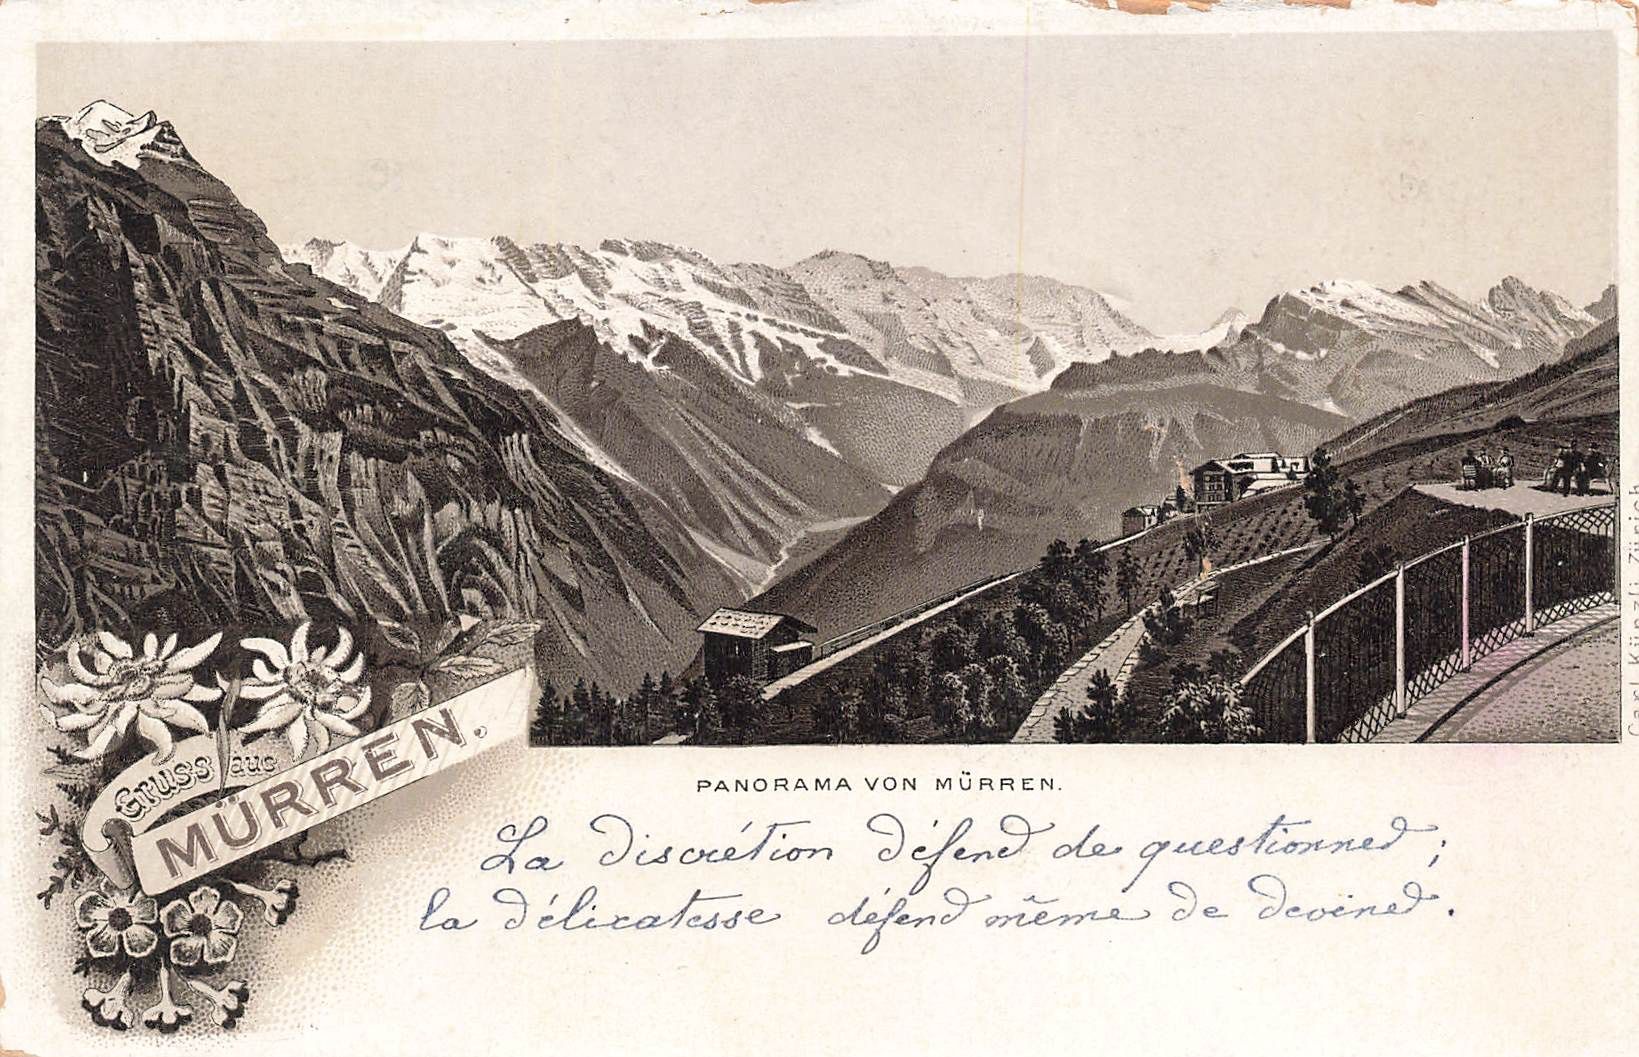 Gruss aus
MÜRREN.
PANORAMA VON MÜRREN.
Carl Künzli Zürich
La discrétion défend de questionner ;
la délicatesse défend même de deviner.